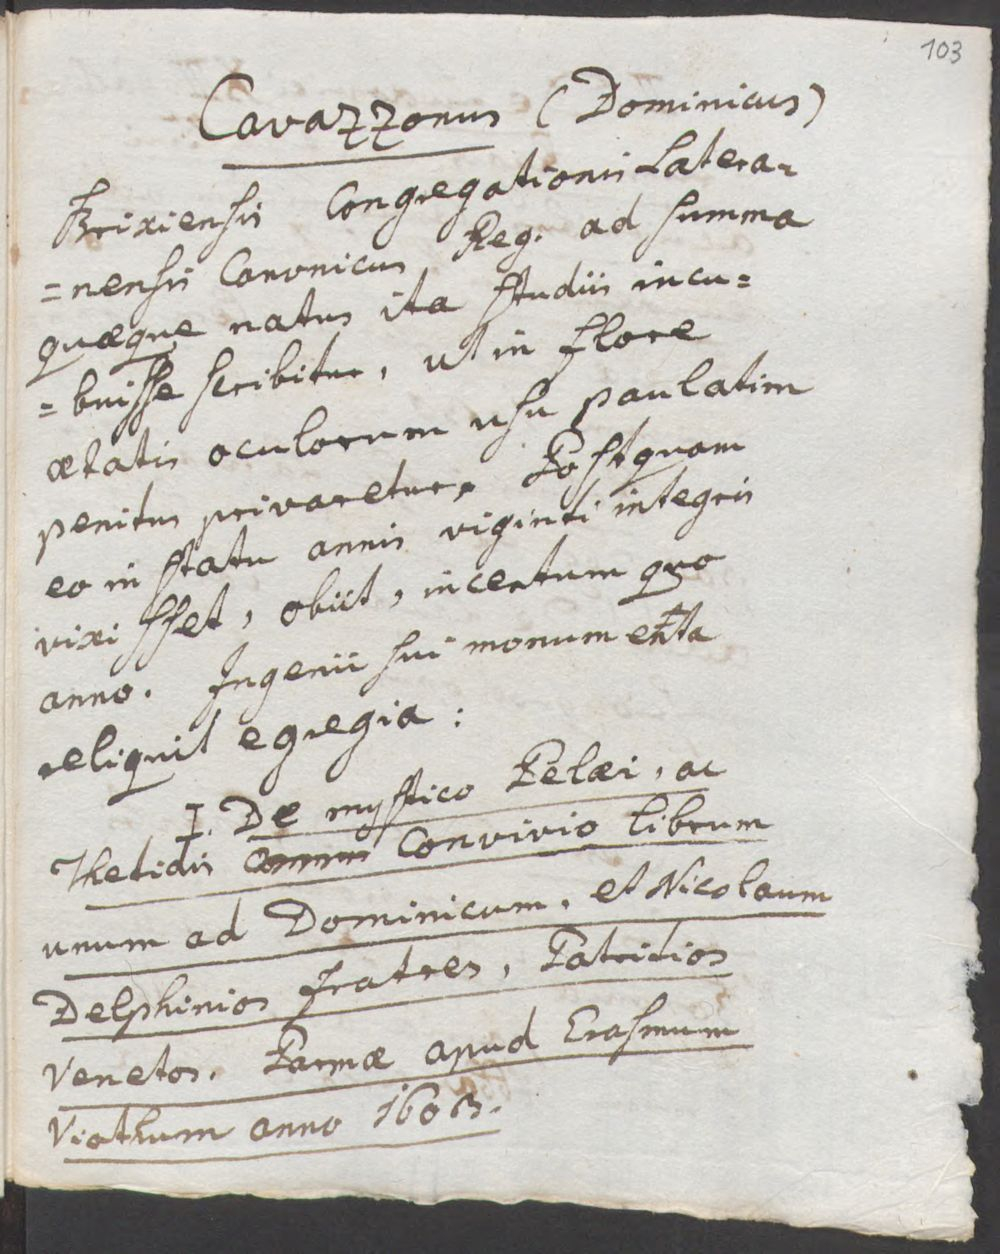 103
Cavazzonus (Dominicus)
Brixiensis Congregationis Latera=
=nensis Canonicus Reg. ad summa
quæque natus ita studiis incu=
=buisse scribitur, ut in flore
ætatis oculorum usu paulatim
penitus privaretur. Postquam
eo in statu annis viginti integris
vixisset, obiit, incertum quo
anno. Ingenii sui monumenta
reliquit egregia:
I. De mystico Pelæi, ac
Thetidis Convivio librum
unum ad Dominicum, et Nicolaum
Delphinios fratres, Patritios
Venetos. Parmæ apud Erasmum
Viothum anno 1603.